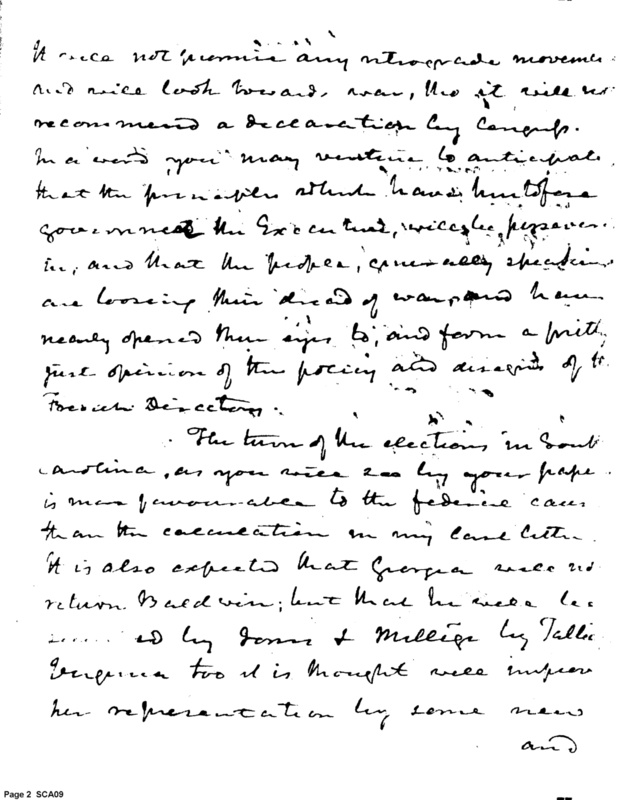 It will not promise any retrograde moveme
and will look towards war, tho it will no
recommend a declaration by Congress.
In a word you may venture to anticipate
that the principles which have heretofore
governned the Executive, will be persever
in; and that the people, generally speaking
are loosing their dread of war, and have
nearly opened their eyes to, and form a pritty
just opinion of the policy and designs of t
French Directory.
The turn of the elections in South
Carolina, as you will see by your pape
is more favourable to the federal cause
than the calculation in my last letter.
It is also expected that Georgia will no
return Baldwin; but that he will be
ed by Jones & Milledge by
Virginia too it is thought will improve
her representation by some new
and
Page 2 SCA09